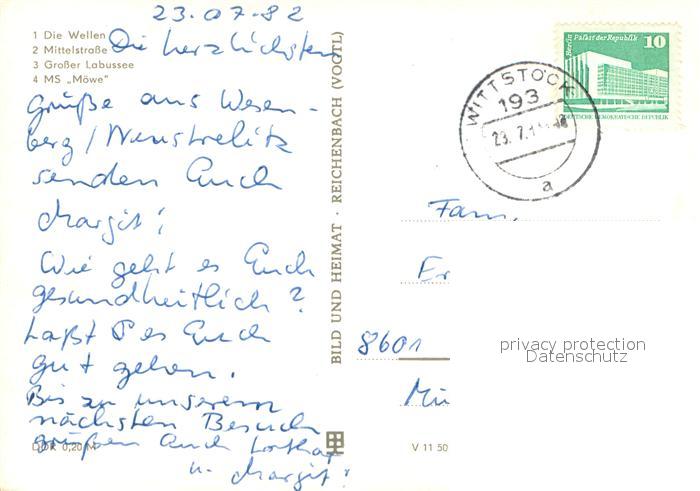 23.07.82
1 Die Wellen
2 Mittelstraße
3 Großer Labussee
4 MS „Möwe"
Die herzlichsten
Grüße aus Wesen-
berg/Neustrelitz
senden Euch
Margit!
Wie geht es Euch
gesundheitlich?
Laßt es Euch
gut gehen.
Bis zu unserem
nächsten Besuch
grüßen Euch Lothar
u. Margit!
DDR 0,20 M
BILD UND HEIMAT · REICHENBACH (VOGTL)
V 11 50
Berlin Palast der Republik
10
DEUTSCHE DEMOKRATISCHE REPUBLIK
WITTSTOCK
193
23.7.
a
Fam.
Er
8601
Mü
privacy protection
Datenschutz